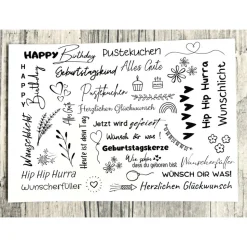 HAPPY Birthday
Pustekuchen
HAPPY
Birthday
Geburtstagskind
Alles Gute
Pustekuchen
Herzlichen Glückwunsch
Wunschlicht
Heute ist dein Tag
Jetzt wird gefeiert
Wünsch dir was!
Geburtstagskerze
Wie schön
dass du geboren bist
Hip Hip Hurra
Wunschlicht
Hip Hip Hurra
Wunscherfüller
Wunscherfüller
WÜNSCH DIR WAS!
Herzlichen Glückwunsch